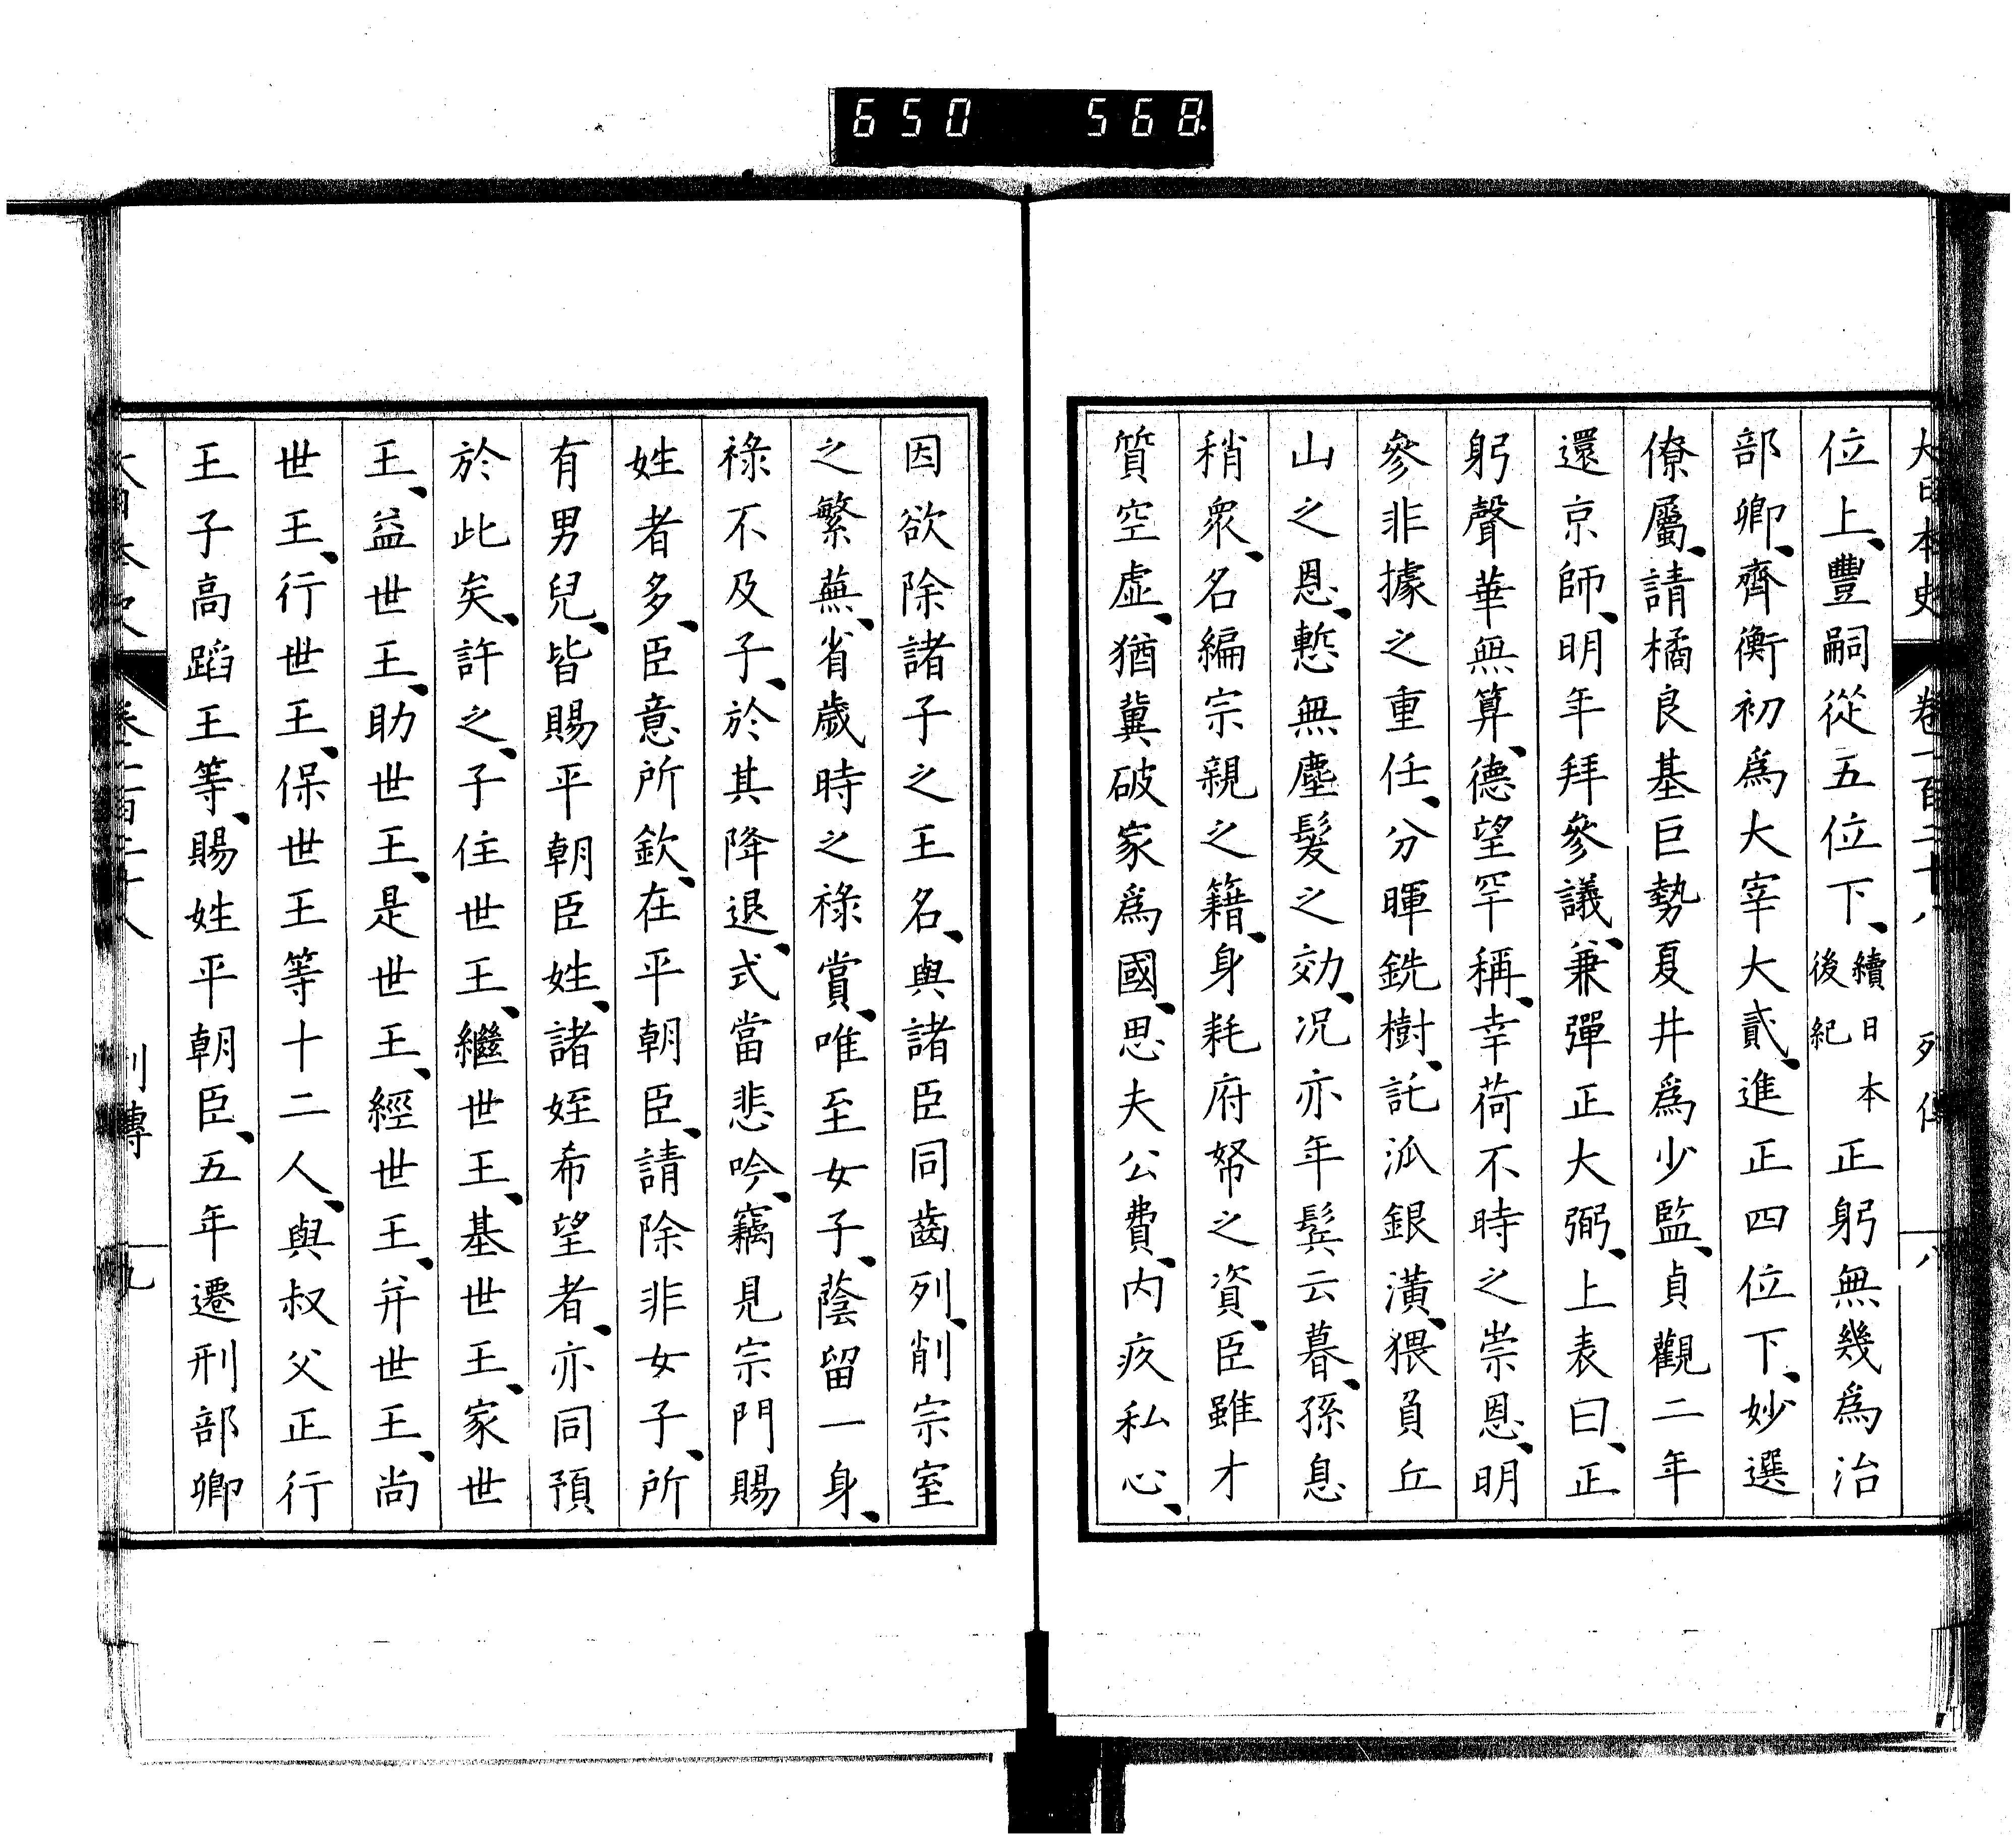 650 568.
大日本史 卷一百二十八 列傳 八
位上、豐嗣從五位下、續日本後紀正躬無幾爲治
部卿、齊衡初爲大宰大貳、進正四位下、妙選
僚屬、請橘良基巨勢夏井爲少監、貞觀二年
還京師、明年拜參議、兼彈正大弼、上表曰、正
躬聲華無算、德望罕稱、幸荷不時之崇恩、明
參非據之重任、分暉銑樹、託泒銀潢、猥負丘
山之恩、慙無塵髮之効、况亦年鬂云暮、孫息
稍衆、名編宗親之籍、身耗府帑之資、臣雖才
質空虛、猶冀破家爲國、思夫公費、内疚私心、
因欲除諸子之王名、與諸臣同齒列、削宗室
之繁蕪、省歲時之祿賞、唯至女子、蔭留一身、
祿不及子、於其降退、式當悲吟、竊見宗門賜
姓者多、臣意所欽、在平朝臣、請除非女子、所
有男兒、皆賜平朝臣姓、諸姪希望者、亦同預
於此矣、許之、子住世王、繼世王、基世王、家世
王、益世王、助世王、是世王、經世王、幷世王、尚
世王、行世王、保世王等十二人、與叔父正行
王子高蹈王等、賜姓平朝臣、五年遷刑部卿
大日本史 列傳 九